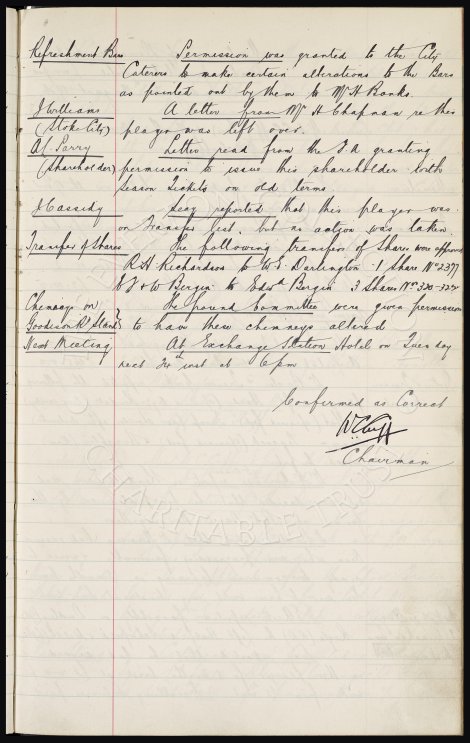 Refreshment Bars Permission was granted to the City
Caterers to make certain alterations to the Bars
as pointed out by them to Mr H Banks.
J Williams A letter from Mr H Chapman re this
(Stoke City) player was left over.
A L Parry Letter read from the F.A. granting
(Shareholder) permission to issue this shareholder with
Season Tickets on old terms.
J Cassidy Secy reported that this player was
on Transfer list, but no action was taken.
Transfer of Shares The following transfer of Shares were approved
R H Richardson to W.S. Darlington 1 Share No 2377
Bergin to Edwd Bergin 3 Shares No 320-322
Chimneys on The Ground Committee were given permission
Goodison Rd Stand } to have these chimneys altered.
Next Meeting At Exchange Station Hotel on Tuesday
next 24th inst at 6pm
Confirmed as Correct
W.C. Cuff
Chairman
CHARITABLE TRUST